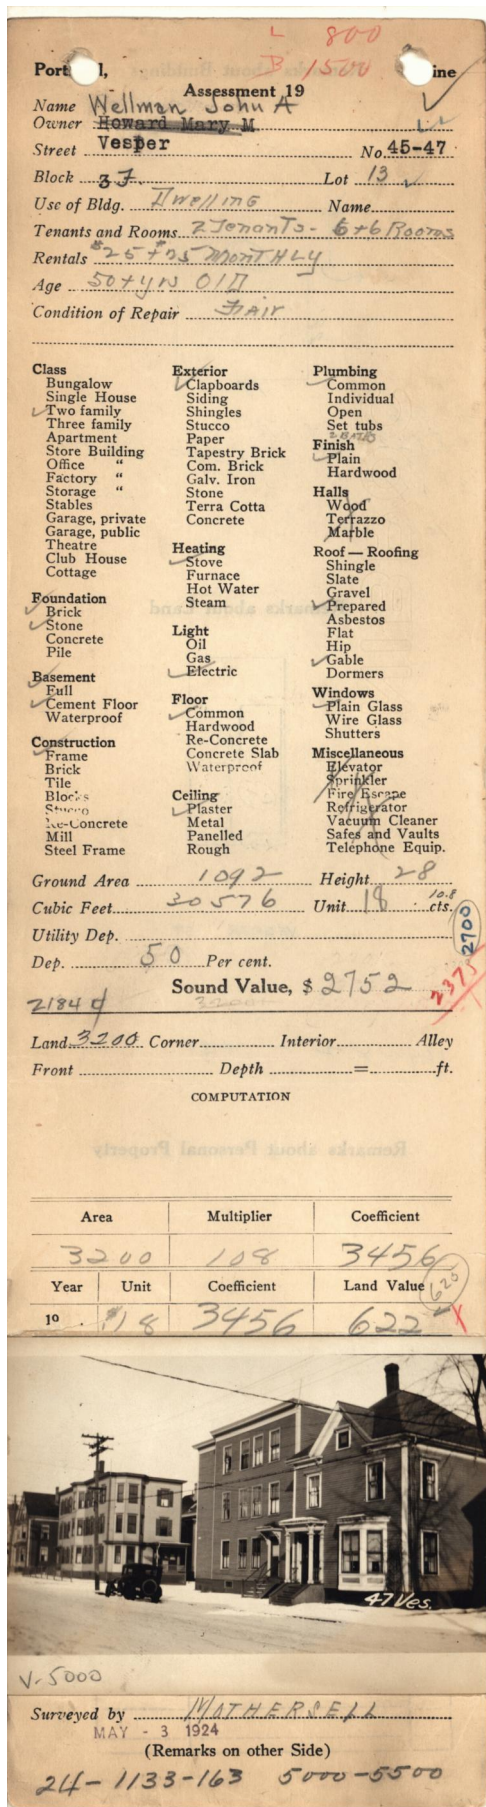 L 800
B 1500
Portl  d,  ine
Assessment 19
Name Wellman John A
Owner Howard Mary M
Street Vesper No. 45-47
Block 37 Lot 13
Use of Bldg. Dwelling Name
Tenants and Rooms 2 Tenants - 6+6 Rooms
Rentals $25 + $25 MONTHLY
Age 50+yrs Old
Condition of Repair Fair
Class
Bungalow
Single House
Two family
Three family
Apartment
Store Building
Office "
Factory "
Storage "
Stables
Garage, private
Garage, public
Theatre
Club House
Cottage
Foundation
Brick
Stone
Concrete
Pile
Basement
Full
Cement Floor
Waterproof
Construction
Frame
Brick
Tile
Blocks
Stucco
Re-Concrete
Mill
Steel Frame
Exterior
Clapboards
Siding
Shingles
Stucco
Paper
Tapestry Brick
Com. Brick
Galv. Iron
Stone
Terra Cotta
Concrete
Heating
Stove
Furnace
Hot Water
Steam
Light
Oil
Gas
Electric
Floor
Common
Hardwood
Re-Concrete
Concrete Slab
Waterproof
Ceiling
Plaster
Metal
Panelled
Rough
Plumbing
Common
Individual
Open
Set tubs
2 BATHS
Finish
Plain
Hardwood
Halls
Wood
Terrazzo
Marble
Roof — Roofing
Shingle
Slate
Gravel
Prepared
Asbestos
Flat
Hip
Gable
Dormers
Windows
Plain Glass
Wire Glass
Shutters
Miscellaneous
Elevator
Sprinkler
Fire Escape
Refrigerator
Vacuum Cleaner
Safes and Vaults
Telephone Equip.
Ground Area 1092 Height 28
Cubic Feet 30576 Unit 18 10.8 cts.
Utility Dep.
2700
Dep. 50 Per cent.
Sound Value, $ 2752
2375
2184
3200
Land 3200 Corner Interior Alley
Front Depth = ft.
COMPUTATION
Area Multiplier Coefficient
3200 108 3456
Year Unit Coefficient Land Value
620
19 . $18 3456 622
47 Ves.
V-5000
Surveyed by MOTHERSELL
MAY - 3 1924
(Remarks on other Side)
24-1133-163 5000-5500